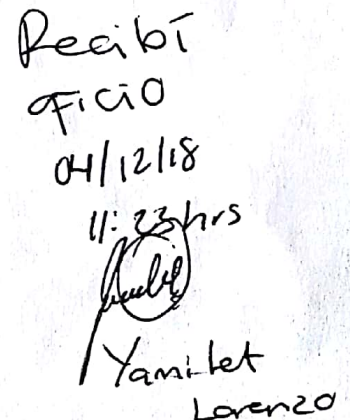 Recibí
oficio
04/12/18
11:23 hrs
Yamilet
Lorenzo